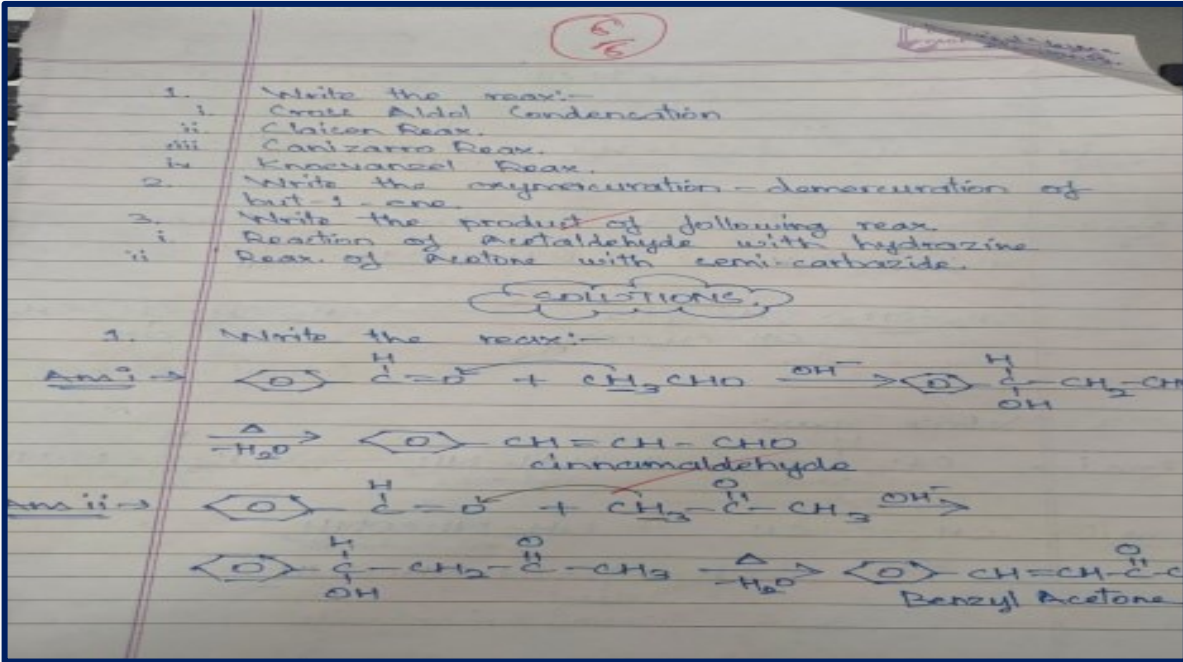 6
6
1. Write the reax:-
i. Cross Aldol Condensation
ii. Claisen Reax.
iii Canizarro Reax.
iv Knoevanzel Reax.
2. Write the oxymercuration - demercuration of
but-1-ene.
3. Write the product of following reax.
i Reaction of Acetaldehyde with hydrazine
ii Reax. of Acetone with semi-carbazide.
SOLUTIONS.
1. Write the reax:-
H H
Ans i → C = O + CH3CHO OH⁻ → C - CH2 - CH
OH
Δ
-H2O → CH = CH - CHO
cinnamaldehyde
H O
Ans ii → C = O + CH3 - C - CH3 OH⁻ →
H O O
C - CH2 - C - CH3 Δ → CH = CH - C - C
OH -H2O
Benzyl Acetone